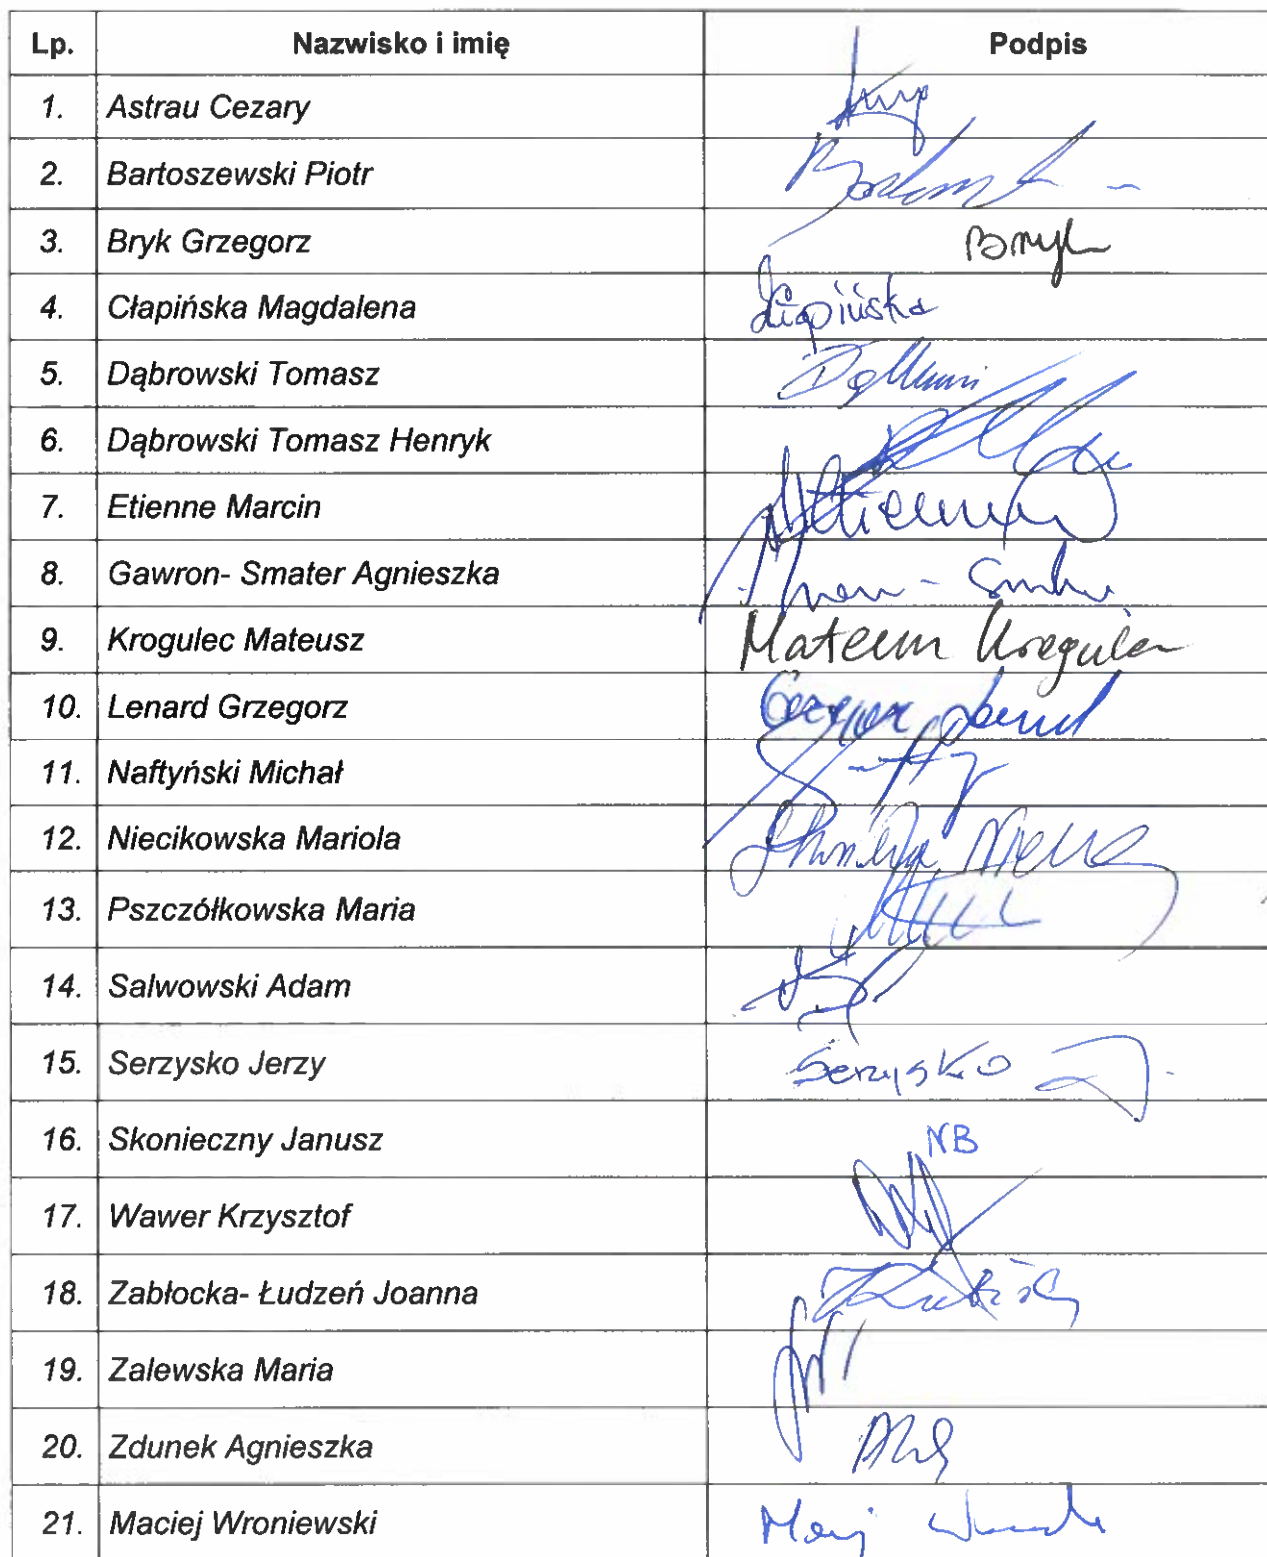 Lp. Nazwisko i imię Podpis
1. Astrau Cezary
2. Bartoszewski Piotr
3. Bryk Grzegorz Bryk
4. Cłapińska Magdalena Cłapińska
5. Dąbrowski Tomasz
6. Dąbrowski Tomasz Henryk
7. Etienne Marcin Etienne
8. Gawron- Smater Agnieszka
9. Krogulec Mateusz Mateusz Krogulec
10. Lenard Grzegorz Grzegorz Lenard
11. Naftyński Michał
12. Niecikowska Mariola
13. Pszczółkowska Maria
14. Salwowski Adam
15. Serzysko Jerzy Serzysko J.
16. Skonieczny Janusz NB
17. Wawer Krzysztof
18. Zabłocka- Łudzeń Joanna
19. Zalewska Maria
20. Zdunek Agnieszka
21. Maciej Wroniewski